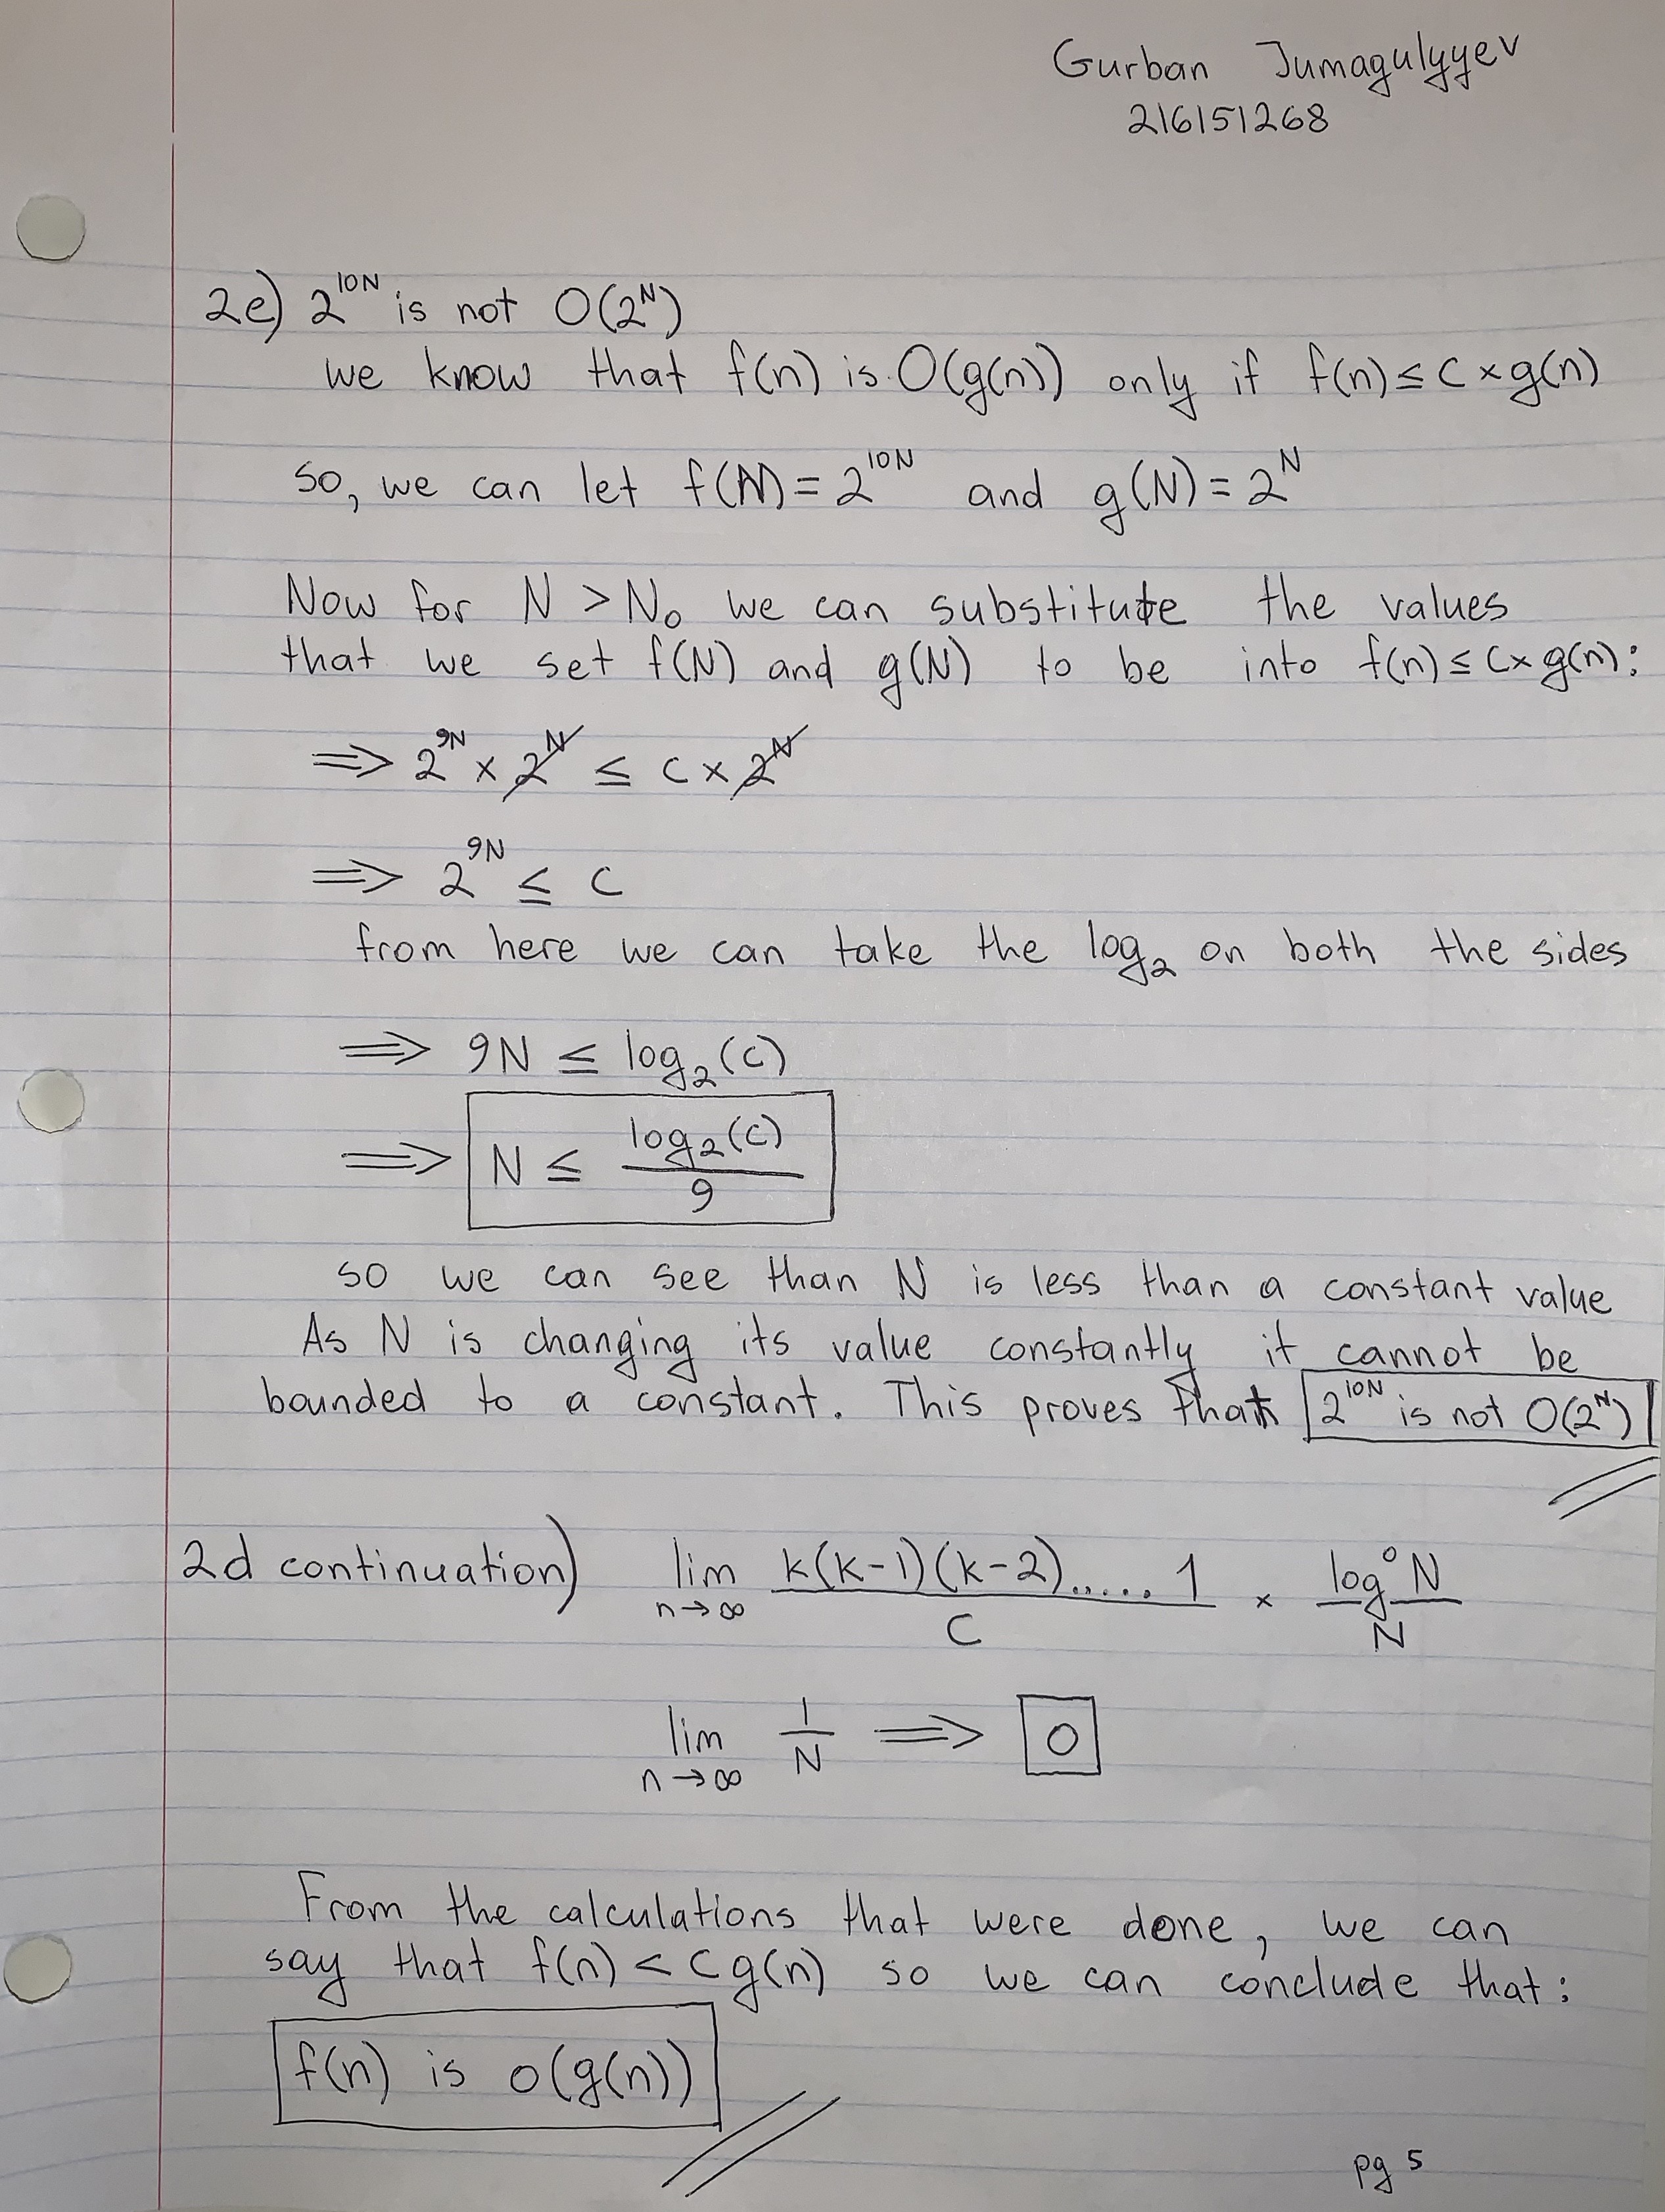 Gurban Jumagulyyev
216151268
2e) 2^10N is not O(2^N)
we know that f(n) is O(g(n)) only if f(n) ≤ C × g(n)
so, we can let f(N) = 2^10N and g(N) = 2^N
Now for N > N₀ we can substitute the values
that we set f(N) and g(N) to be into f(n) ≤ C × g(n):
⟹ 2^9N × 2^N ≤ C × 2^N
⟹ 2^9N ≤ C
from here we can take the log₂ on both the sides
⟹ 9N ≤ log₂(C)
⟹ N ≤ log₂(C) / 9
so we can see than N is less than a constant value
As N is changing its value constantly it cannot be
bounded to a constant. This proves that 2^10N is not O(2^N)
2d continuation) lim n→∞ k(k-1)(k-2)..... 1 / C × log⁰N / N
lim n→∞ 1/N ⟹ 0
From the calculations that were done, we can
say that f(n) < C g(n) so we can conclude that:
f(n) is o(g(n))
pg 5